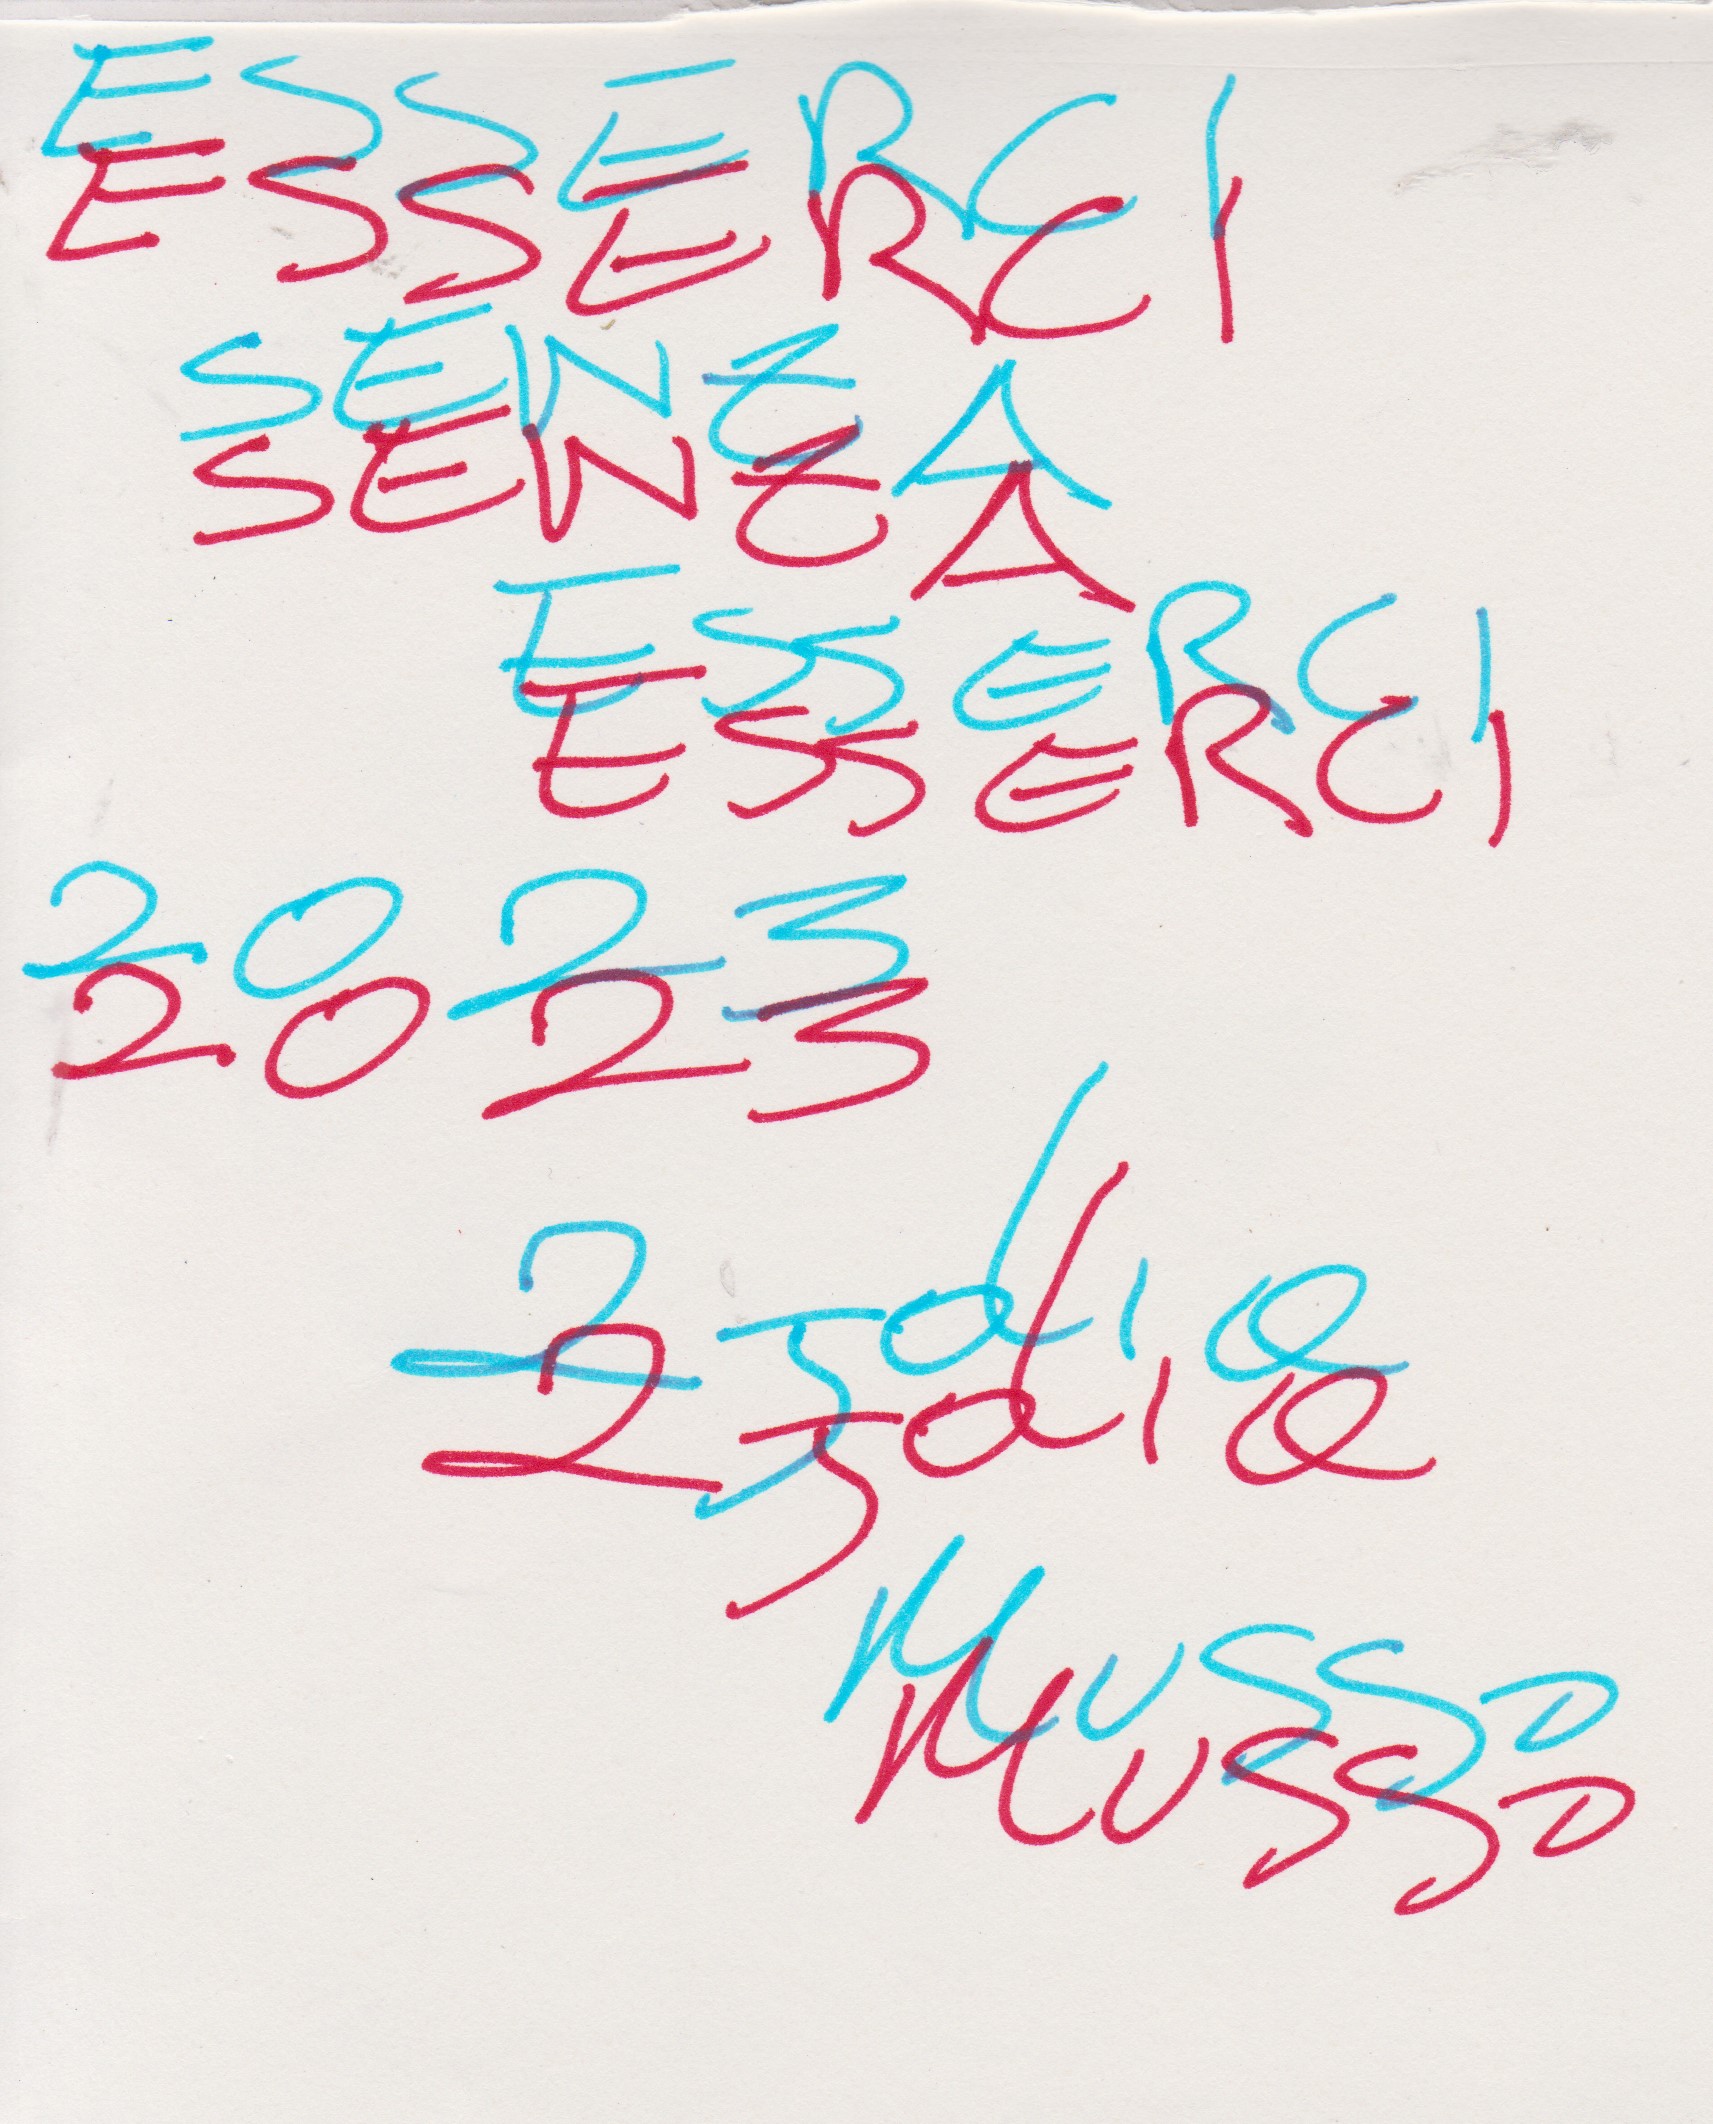 ESSERCI
ESSERCI
SENZA
SENZA
ESSERCI
ESSERCI
2023
2023
Musso
Musso